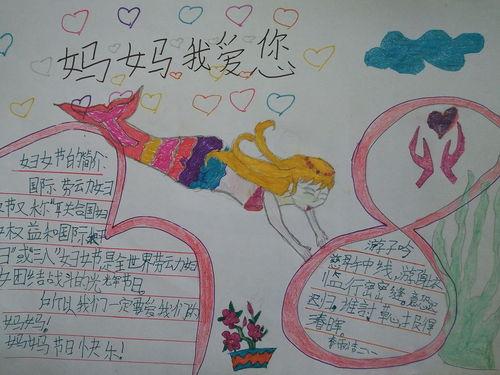 妈妈我爱您
妇女节的简介
国际劳动妇
女节又称"联合国妇
女权益和国际和平
日"或"三八"妇女节是全世界劳动妇
女团结战斗的光辉节日。
所以我们一定要给我们的
妈妈!
妈妈节日快乐!
游子吟
慈母手中线,游
行密密缝。意恐迟
迟归。谁
春晖。